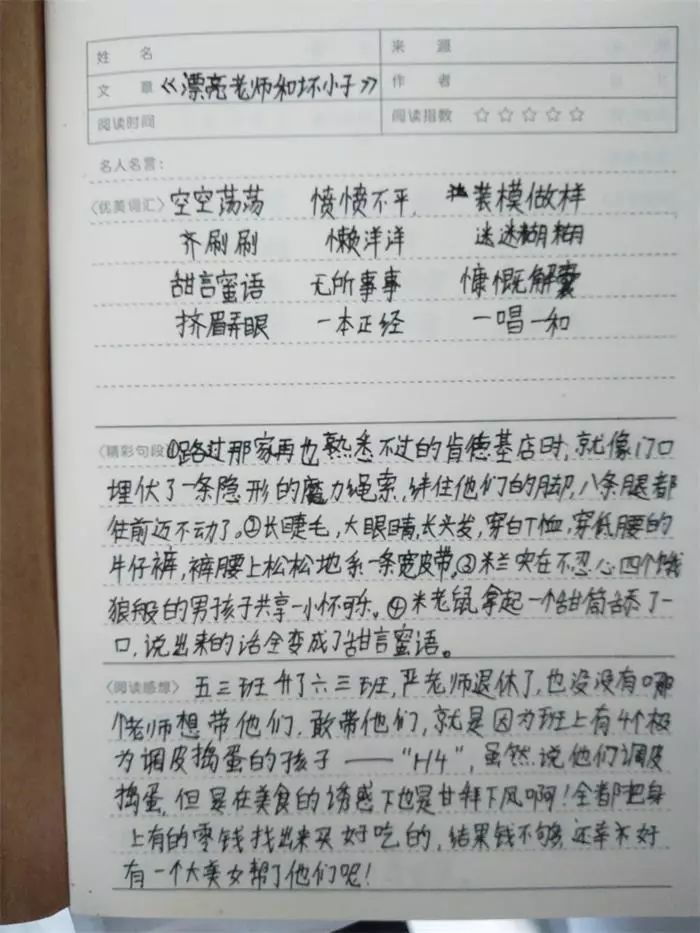 姓 名 来 源
文 章 《漂亮老师和坏小子》 作 者
阅读时间 阅读指数 ☆☆☆☆☆
名人名言:
〈优美词汇〉 空空荡荡 愤愤不平. 装模做样
齐刷刷 懒洋洋 迷迷糊糊
甜言蜜语 无所事事 慷慨解囊
挤眉弄眼 一本正经 一唱一和
〈精彩句段〉 ①路过那家再也熟悉不过的肯德基店时,就像门口
埋伏了一条隐形的魔力绳索,绊住他们的脚,八条腿都
往前迈不动了。②长睫毛,大眼睛,长头发,穿白T恤,穿低腰的
牛仔裤,裤腰上松松地系一条宽皮带。③米兰实在不忍心四个饿
狼般的男孩子共享一小杯可乐。④米老鼠拿起一个甜筒舔了一
口,说出来的话全变成了甜言蜜语。
〈阅读感想〉 五三班升了六三班,严老师退休了,也没没有哪
个老师想带他们,敢带他们,就是因为班上有4个极
为调皮捣蛋的孩子——“H4”,虽然说他们调皮
捣蛋,但是在美食的诱惑下也是甘拜下风啊!全都把身
上有的零钱找出来买好吃的,结果钱不够,还幸不好
有一个大美女帮了他们呢!